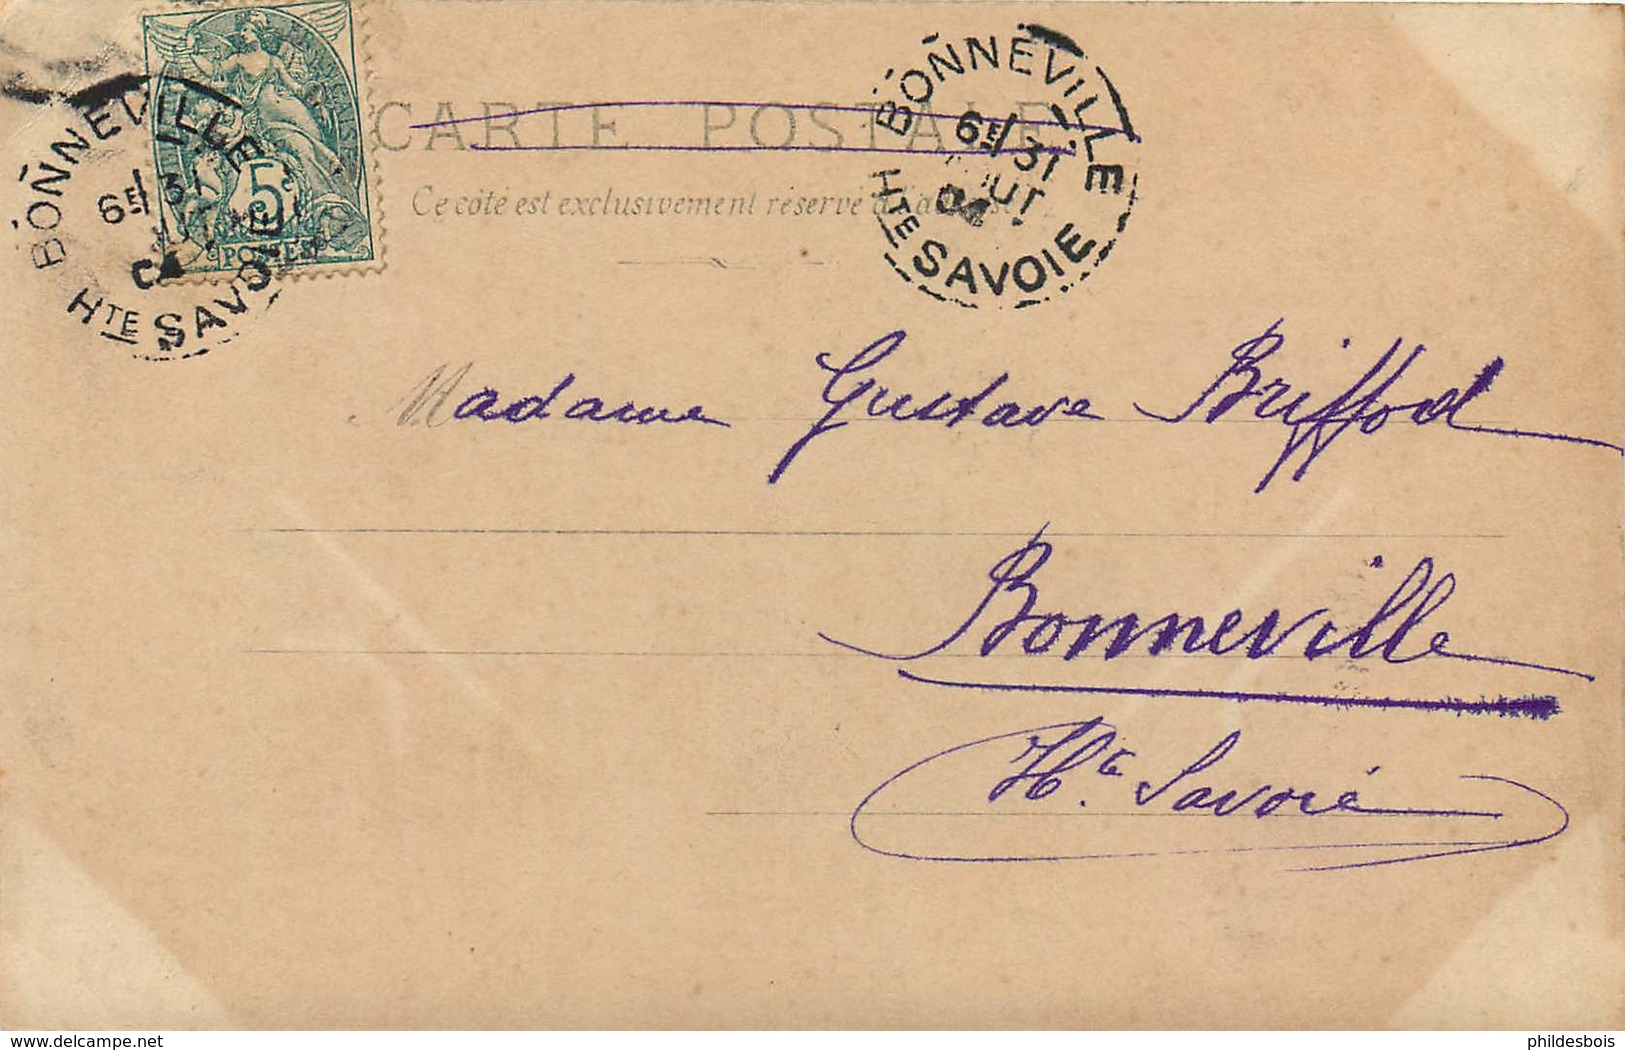 CARTE POSTALE
Ce côté est exclusivement réservé à l'adresse
5c
POSTES
BONNEVILLE
6E 31
04
Hte SAVOIE
BONNEVILLE
6E 31
AOUT
04
Hte SAVOIE
Madame Gustave Briffod
Bonneville
Hte Savoie
www.delcampe.net
phildesbois